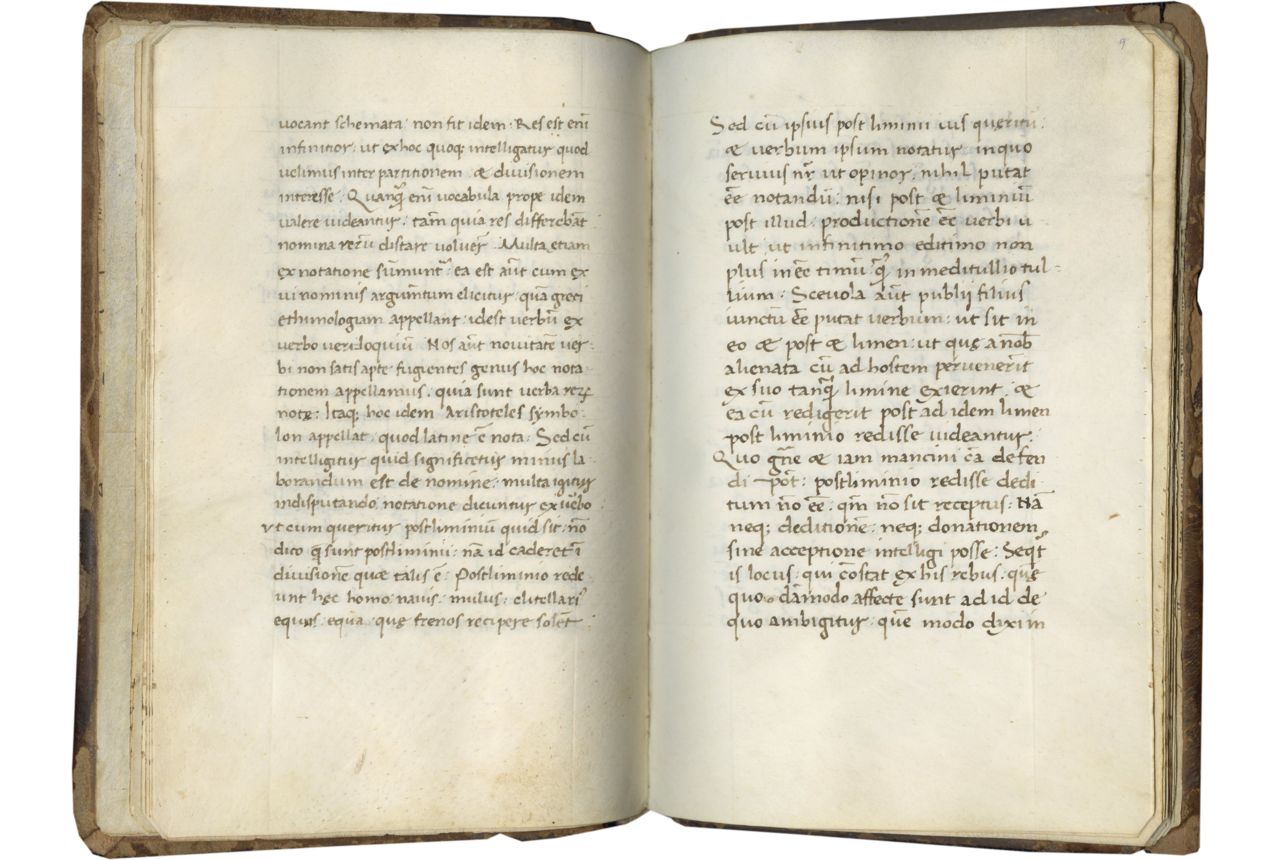 vocant schemata· non fit idem· Res est eni͂
infinitior· ut ex hoc quoq; intelligatur quod
uolimus inter partitionem & diuisionem
interesse· Quanq̃ eni͂ vocabula prope idem
valere uideantur· tam̃ quia res differebãt
nomina rerũ distare voluer̃· Multa etiam
ex notatione sũmunt᷑· ea est aũt cum ex
ui nominis argum̃tum elicitur· quã greci
ethimologiam appellant· idest verbũ ex
verbo veriloquiũ· Nos aũt nouitatẽ ver
bi non satis apte fugientes genus hoc nota
tionem appellamus· quia sunt verba reꝝ
notę· Itaq; hoc idem Aristoteles symbo
lon appellat· quod latine ẽ nota· Sed cũ
intelligitur quid significetur minus la
borandum est de nomine· multa igitur
in disputando notatione dicuntur ex u͂bo
vt cum queritur postliminiũ quid sit· nõ
dico q̃ sunt postliminii· nã id caderet ĩ
diuisionẽ quæ talis ẽ· Postliminio rede
unt hęc homo· nauis· mulus· clitellari᷒
equus· equa· quę frenos recipere solẽt·
9
Sed cũ ipsius post liminii ius queritũ·
& verbum ipsum notatur· in quo
seruius nr̃ ut opinor· nihil putat
ẽe notandũ· nisi post & liminiũ
post illud· productionẽ ẽe verbi u
ult ut in finitimo editimo non
plus inẽe timũ· q̃ in meditullio tul
lium· Sceuola aũt publii filius
iunctũ ẽe putat verbum· ut sit in
eo & post & limen· ut quę a nob̃
alienata cũ ad hostem peruenerĩt
ex suo tanq̃ limine exierint· &
ea cũ redigerit post ad idem limen
post liminio redisse uideantur·
Quo gñe & iam mancini cã defen
di põt· postliminio redisse dedi
tum ño ẽe· qm̃ ño sit receptus· Nã
neq; deditionẽ· neq; donationem
sine acceptione intelligi posse· Seqt᷑
is locus· qui cõstat ex his rebus· quę
quo dãmodo affecte sunt ad id de
quo ambigitur· quẽ modo dixi in